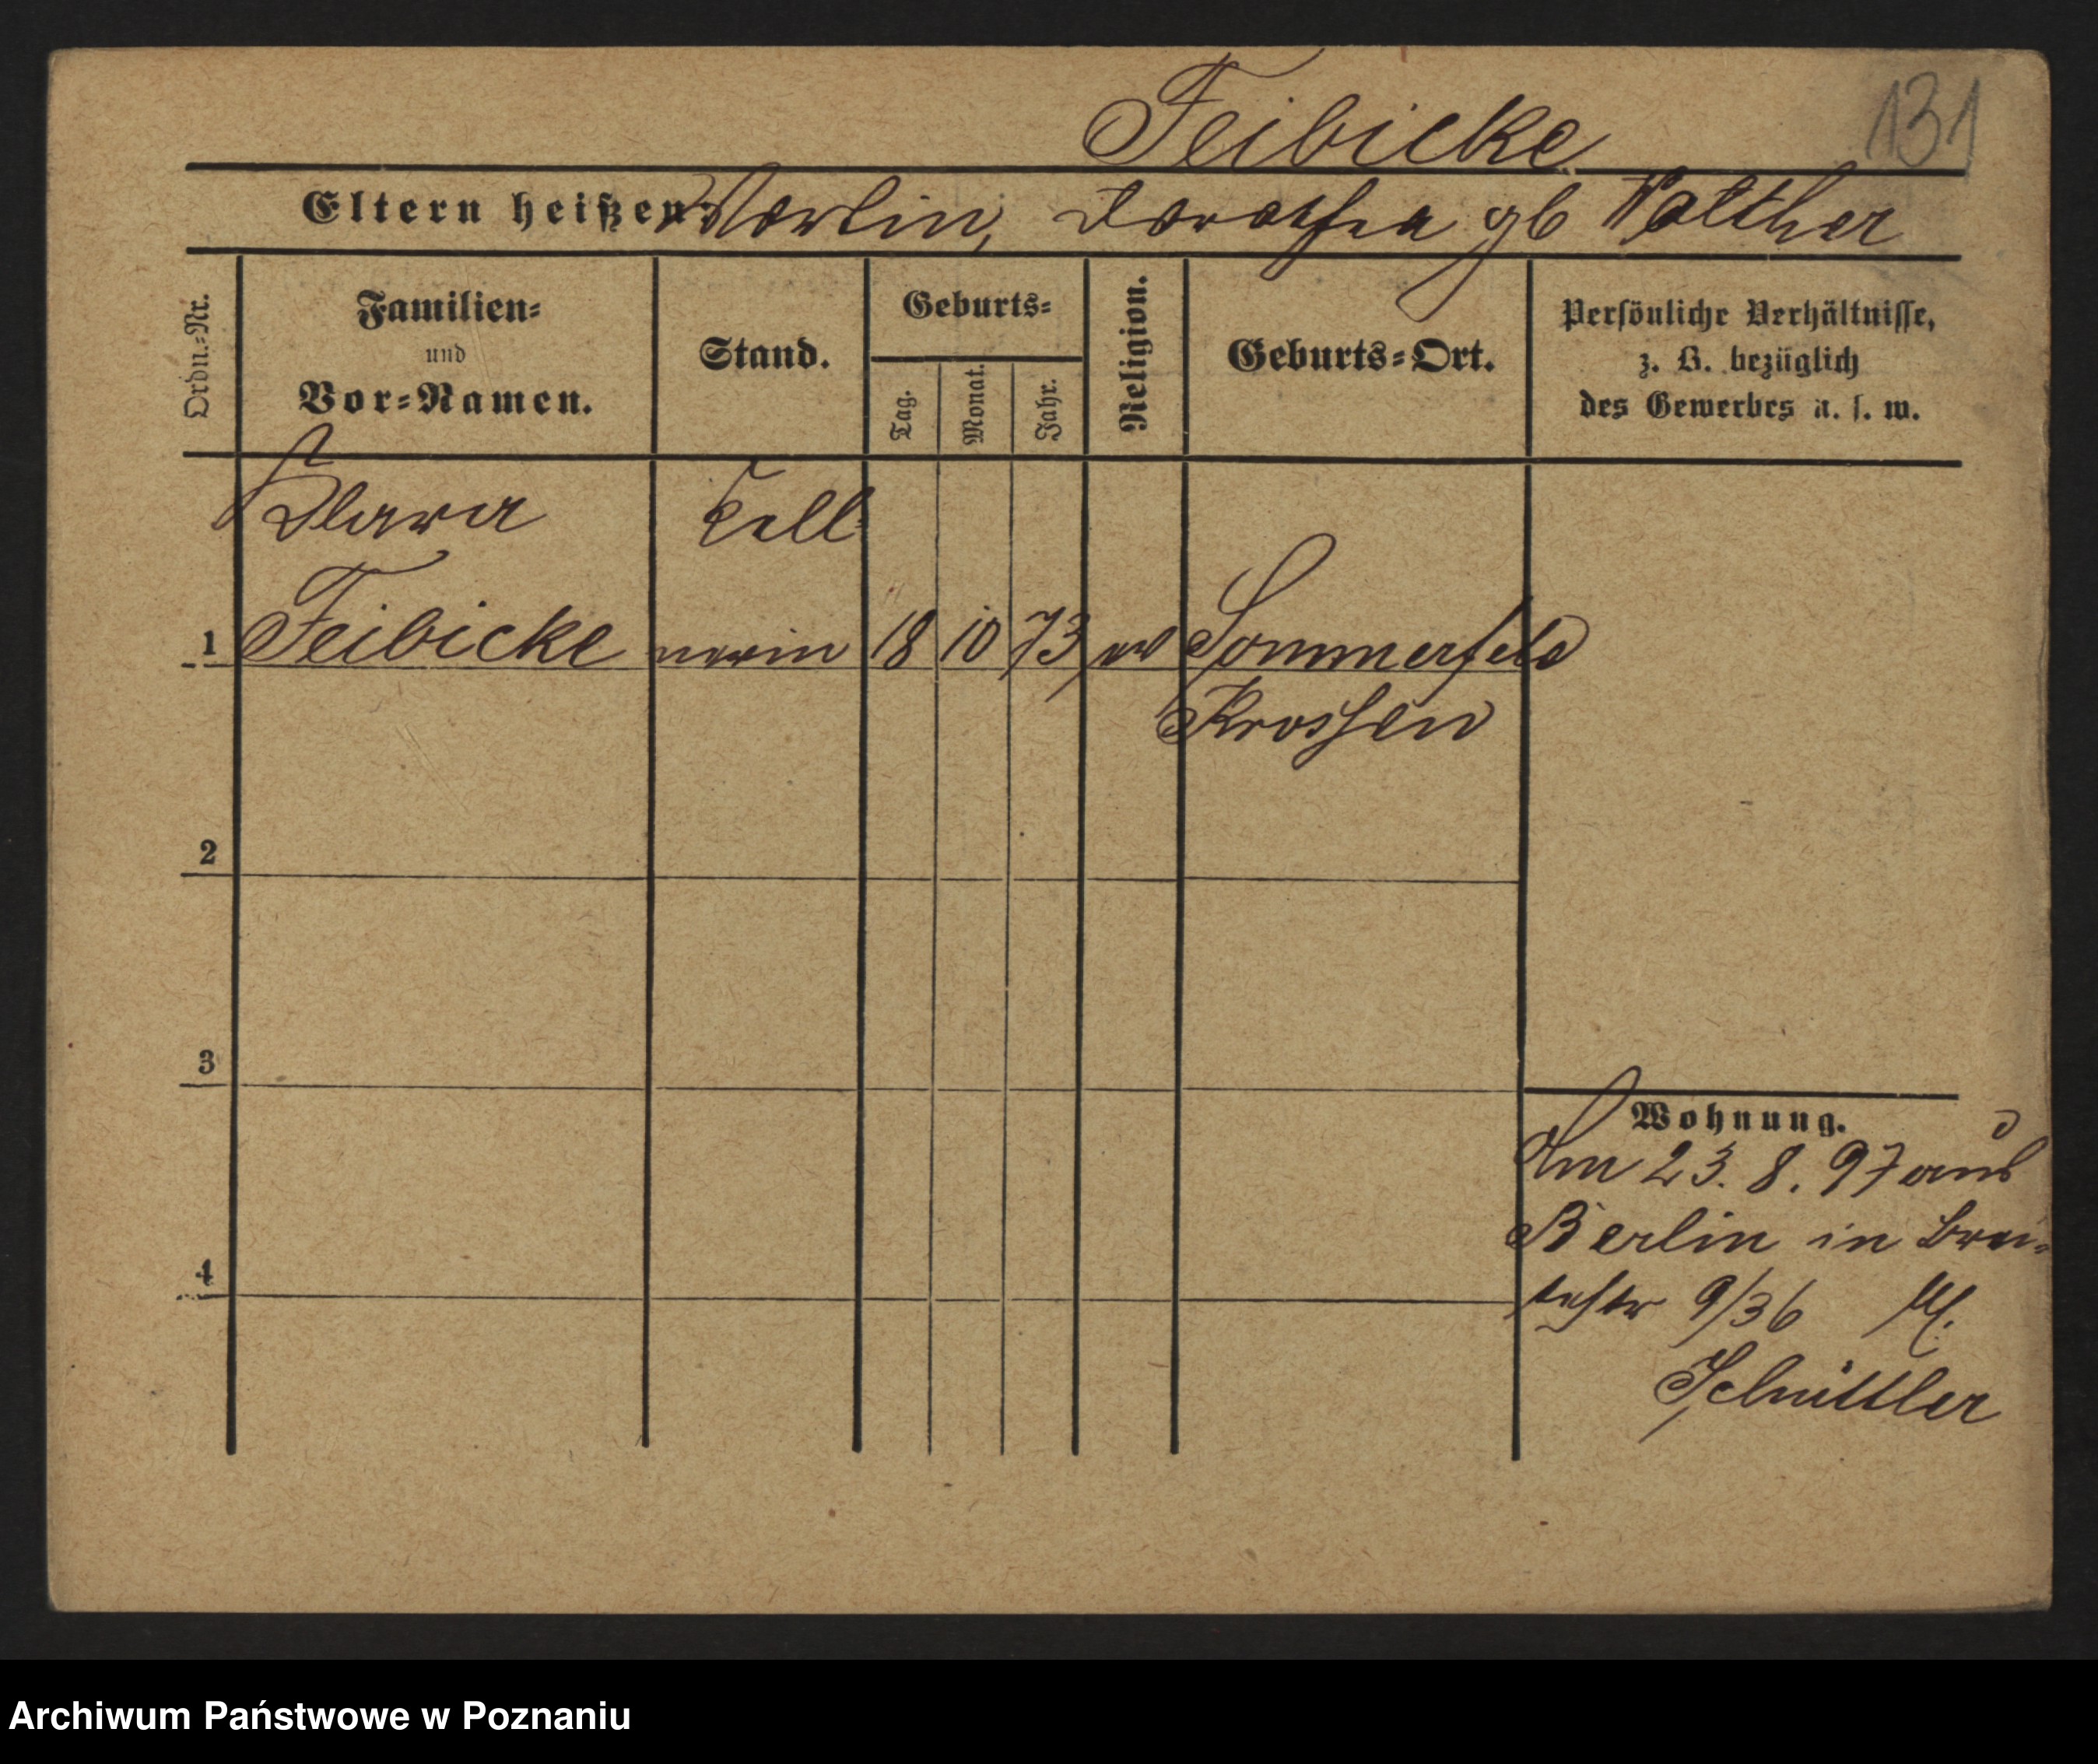 131
Feibicke
Eltern heißen: Martin, Dorothea gb Walther
Ordn.-Nr.
Familien-
und
Vor-Namen.
Stand.
Geburts-
Tag.
Monat.
Jahr.
Religion.
Geburts-Ort.
Persönliche Verhältnisse,
z. B. bezüglich
des Gewerbes u. s. w.
Clara Kell
1 Feibicke nerin 18 10 73 ev Sommerfeld
Krossen
2
3
4
Wohnung.
Am 23. 8. 97 aus
Berlin in Brei-
testr 9/36
Schnittler
Archiwum Państwowe w Poznaniu